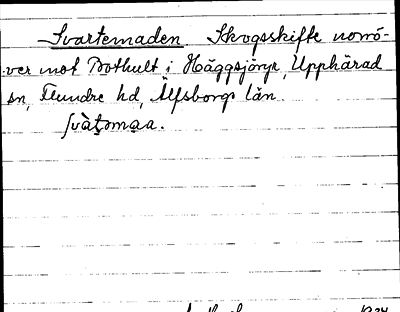 Svartemaden Skogsskifte norrö-
ver mot Bothult i Häggsjöryr, Upphärad
sn, Flundre hd, Älfsborgs län.